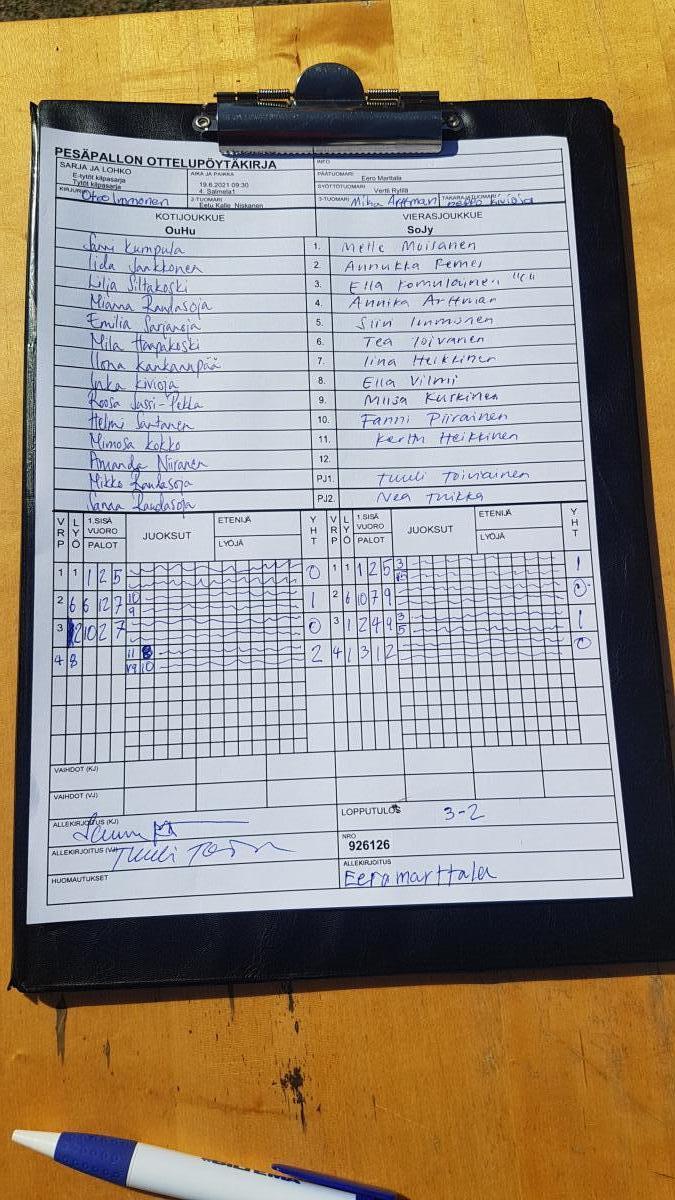 PESÄPALLON OTTELUPÖYTÄKIRJA
INFO
SARJA JA LOHKO
E-tytöt kilpasarja
Tytöt kilpasarja
AIKA JA PAIKKA
19.6.2021 09:30
4. Salmela1
PÄÄTUOMARI
Eero Marttala
SYÖTTÖTUOMARI
Vertti Rytilä
KIRJURI Otso Immonen
2-TUOMARI
Eetu Kalle Niskanen
3-TUOMARI Miha Arttman
TAKARAJATUOMARI
Kivioja
KOTIJOUKKUE
OuHu
VIERASJOUKKUE
SoJy
Kumpula 1. Melle Moilanen
Iida Jaakkonen 2. Annukka Remes
Lilja Siltakoski 3. Ella Komulainen "C"
Mianna Randasoja 4. Annika Arttman
Emilia Sarjanoja 5. Siiri Immonen
Mila Haapakoski 6. Tea Toivanen
Ilona Kankaanpää 7. Iina Heikkinen
Inka Kivioja 8. Ella Vilmi
Roosa Jussi-Pekka 9. Miisa Kurkinen
Helmi Santanen 10. Fanni Piirainen
Mimosa Kokko 11. Kerttu Heikkinen
Amanda Niiranen 12.
Mikko Randasoja PJ1. Tuuli Toiviainen
Sanna Randasoja PJ2. Nea Tuikka
VRP LYÖ 1.SISÄ VUORO PALOT JUOKSUT ETENIJÄ LYÖJÄ YHT VRP LYÖ 1.SISÄ VUORO PALOT JUOKSUT ETENIJÄ LYÖJÄ YHT
1 1 1 2 5 0 1 1 1 2 5 3 1
2 6 6 12 7 10 9 1 2 6 10 7 9 0
3 12 10 2 7 0 3 1 2 4 9 3 5 1
4 8 11 8 10 2 4 1 3 12 0
VAIHDOT (KJ)
VAIHDOT (VJ)
ALLEKIRJOITUS (KJ)
LOPPUTULOS 3-2
ALLEKIRJOITUS (VJ) Tuuli
NRO
926126
HUOMAUTUKSET
ALLEKIRJOITUS
Eero marttala
BILTEMA